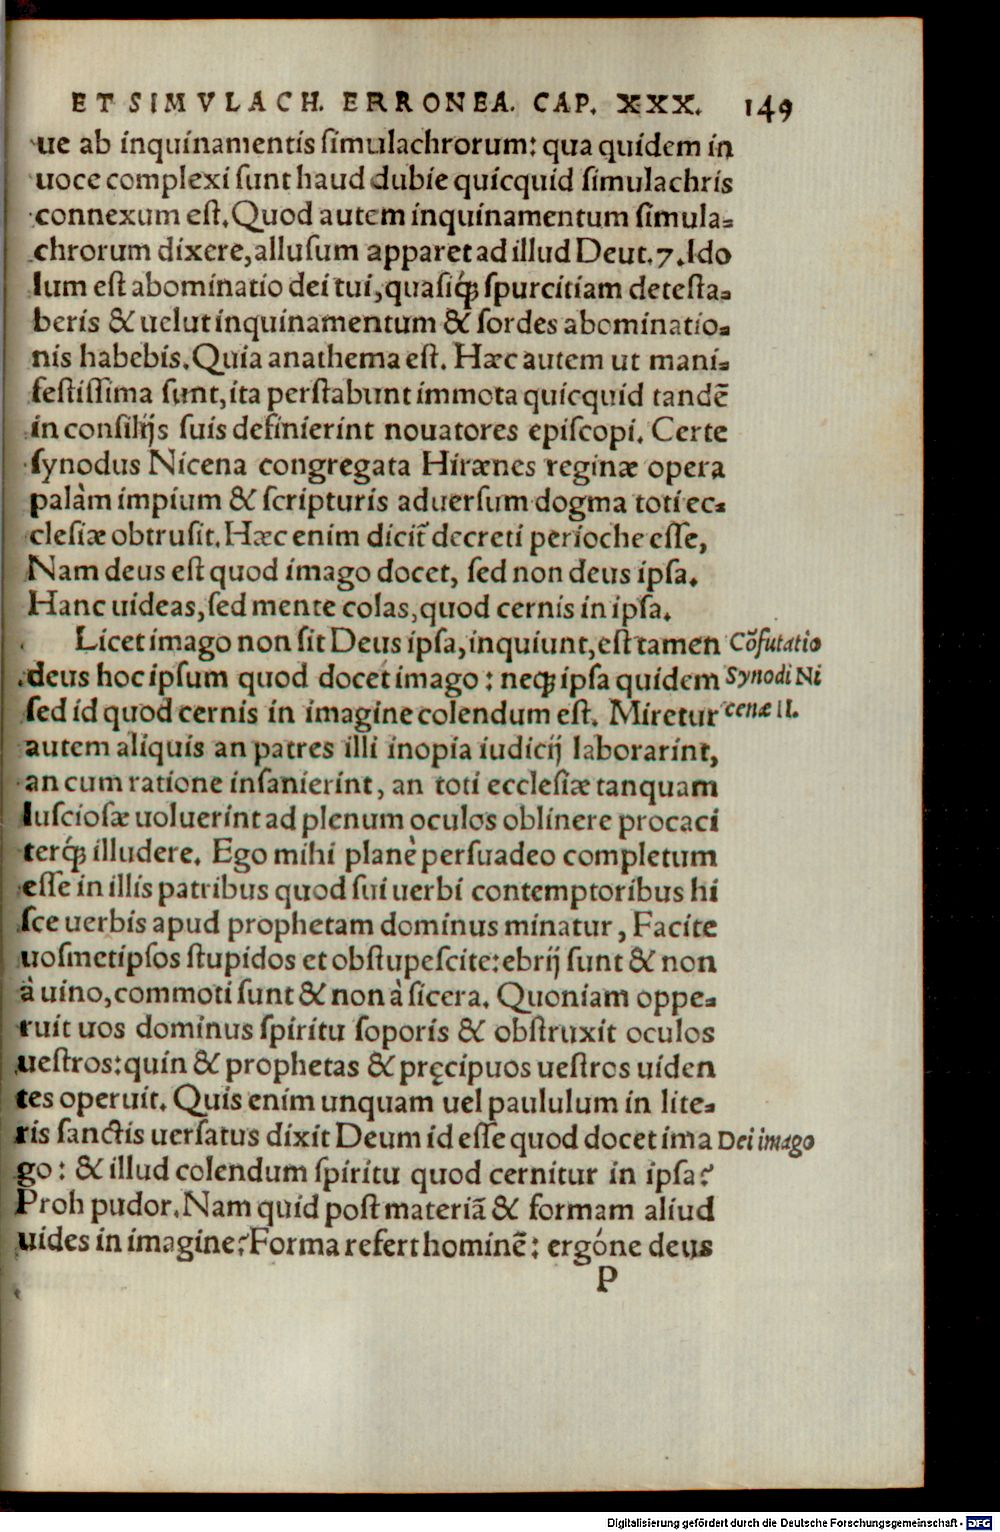 ET SIMVLACH. ERRONEA. CAP. XXX. 149
ue ab inquinamentis simulachrorum: qua quidem in
uoce complexi sunt haud dubie quicquid simulachris
connexum est. Quod autem inquinamentum simula⸗
chrorum dixere, allusum apparet ad illud Deut. 7. Ido
lum est abominatio dei tui, quasiq́; spurcitiam detesta⸗
beris & uelut inquinamentum & sordes abominatio⸗
nis habebis. Quia anathema est. Hæc autem ut mani⸗
festissima sunt, ita perstabunt immota quicquid tandē
in consilijs suis definierint nouatores episcopi. Certe
synodus Nicena congregata Hirænes reginæ opera
palàm impium & scripturis aduersum dogma toti ec⸗
clesiæ obtrusit. Hæc enim dicit̃ decreti perioche esse,
Nam deus est quod imago docet, sed non deus ipsa.
Hanc uideas, sed mente colas, quod cernis in ipsa.
Licet imago non sit Deus ipsa, inquiunt, est tamen
deus hoc ipsum quod docet imago: neq; ipsa quidem
sed id quod cernis in imagine colendum est. Miretur
Cõfutatio
Synodi Ni
cenæ II.
autem aliquis an patres illi inopia iudicij laborarint,
an cum ratione insanierint, an toti ecclesiæ tanquam
lusciosæ uoluerint ad plenum oculos oblinere procaci
terq́; illudere. Ego mihi planè persuadeo completum
esse in illis patribus quod sui uerbi contemptoribus hi
sce uerbis apud prophetam dominus minatur, Facite
uosmetipsos stupidos et obstupescite: ebrij sunt & non
à uino, commoti sunt & non à sicera. Quoniam oppe⸗
ruit uos dominus spiritu soporis & obstruxit oculos
uestros: quin & prophetas & pręcipuos uestros uiden
tes operuit. Quis enim unquam uel paululum in lite⸗
ris sanctis uersatus dixit Deum id esse quod docet ima
Dei imago
go: & illud colendum spiritu quod cernitur in ipsa?
Proh pudor. Nam quid post materiã & formam aliud
uides in imagine? Forma refert hominē: ergóne deus
P
Digitalisierung gefördert durch die Deutsche Forschungsgemeinschaft - DFG